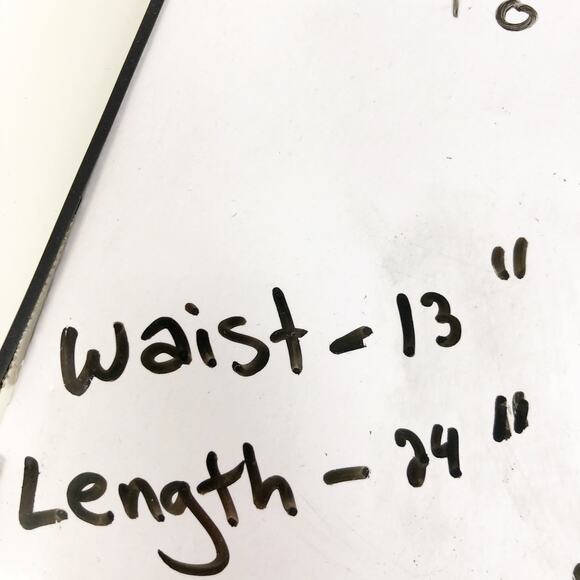 Waist - 13"
Length - 24"